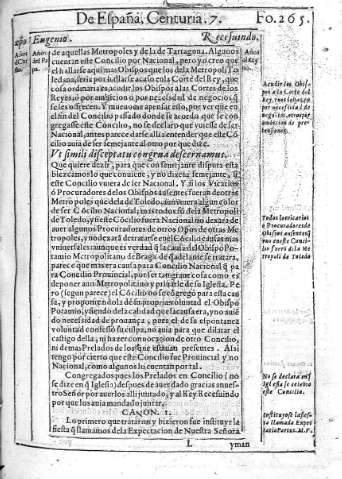 De España, Centuria. 7. Fo. 265.
Eugenio. Recesuindo.
de aquellas Metropoles y de la de Tarragona. Algunos
cuentan este Concilio por Nacional, pero yo creo que
el hallarse aqui mas Obispos que los de la Metropoli To
ledana, seria por hallarse acaso en la Corte del Rey, que
cosa ordinaria es acudir los Obispos a las Cortes de los
Reyes, ò por ambicion ò por necesidad de negocios, q̃
se les ofrecen. Y mueueme a pensar esto, por ver que en
el fin del Concilio passado donde se acorda que se con
gregasse este Concilio, no se declarò que vuiesse de ser
Nacional, antes parece darse alli a entender que el otro
auia de ser semejante al que fue
Vt simili disceptatu congrua decernamus.
Que quiere dezir, para que con semejante disputa esta
blezcamos lo que conuiene, y no dixera semejante, si
este Concilio vuiera de ser Nacional. Y si los Vicarios
ò Procuradores de los Obispos ausentes fueran de otras
Metropoles que de la de Toledo, aun vuiera algun color
de ser Cõcilio Nacional, mas todos sõ de la Metropoli
de Toledo, y si este Cõcilio fuera Nacional no dexara de
auer algunos Procuradores de otros Opos de otras Me
tropoles
uersarse las causas es verdad q̃ la causa del Obispo Po
tamio Metropolitano de Braga de q̃ adelante se tratara,
parece que mas era causa para Concilio Nacional q̃ pa
ra Concilio Prouincial, por ser tan graue cosa como es
deponer a un Metropolitano y priuarle de su Iglesia. Pe
ro (segun parece) el Cõcilio no se cõgregò para esta cau
sa, y proponiendola de su propria voluntad el Obispo
Potamio, y siendo de tal calidad que la causa era, y no auiẽ
do necesidad de prouança, pues el de su espontanea
voluntad confessò su culpa, no auia para que dilatar el
castigo della, ni hazer conuocacion de otro Concilio,
ni de mas Prelados de los que estauan presentes. Assi
tengo por cierto que este Concilio fue Prouincial y no
Nacional, como algunos lo cuentan por tal.
Congregados pues los Prelados en Concilio (no
se dize en q̃ Iglesia) despues de auer dado gracias a nues
tro Señor por auerlos alli juntado, y al Rey Recesuindo
por que los auia mandado juntar.
CANON. 1.
Lo primero que trataron y hizieron fue instituyr la
fiesta q̃ llamamos de la Expectacion de Nuestra Señora
L yman
Acudir los Obis
pos a la Corte del
Rey
Todos los vicarios
o Procuradores de
Obispos ausentes q̃
en este Conci
lio fueron de la Me
tropoli de Toledo
No se declara en q̃
Iglesia se celebrò
este Concilio.
Instituyose la fies
ta llamada Expec